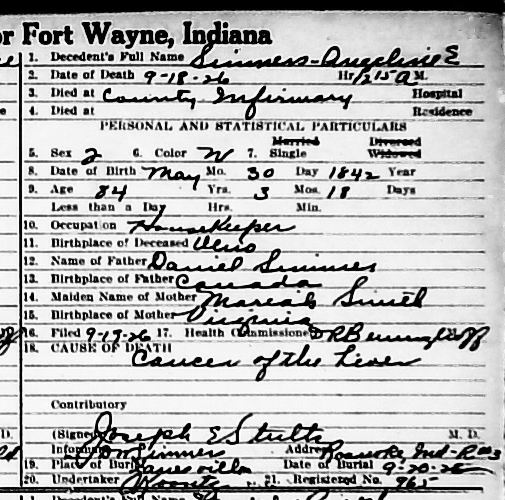 or Fort Wayne, Indiana
1. Decedent's Full Name Simmers-Angeline E
2. Date of Death 9-18-26 Hr. 1215 A M.
3. Died at County Infirmary Hospital
4. Died at Residence
PERSONAL AND STATISTICAL PARTICULARS
Married Divorced
5. Sex 2 6. Color W 7. Single Widowed
8. Date of Birth May Mo. 30 Day 1842 Year
9. Age 84 Yrs. 3 Mos. 18 Days
Less than a Day Hrs. Min.
10. Occupation Housekeeper
11. Birthplace of Deceased Ohio
12. Name of Father Daniel Simmers
13. Birthplace of Father Canada
14. Maiden Name of Mother Smith
15. Birthplace of Mother Virginia
16. Filed 9-19-26 17. Health Commissioner M.D.
18. CAUSE OF DEATH
Cancer of the Liver
Contributory
(Signed Joseph E Stults M. D.
Informant Simmers Address Roanoke Ind-R#3
19. Place of Burial Zanesville Date of Burial 9-20-26
20. Undertaker 21. Registered No. 965
Decedent's Full Name